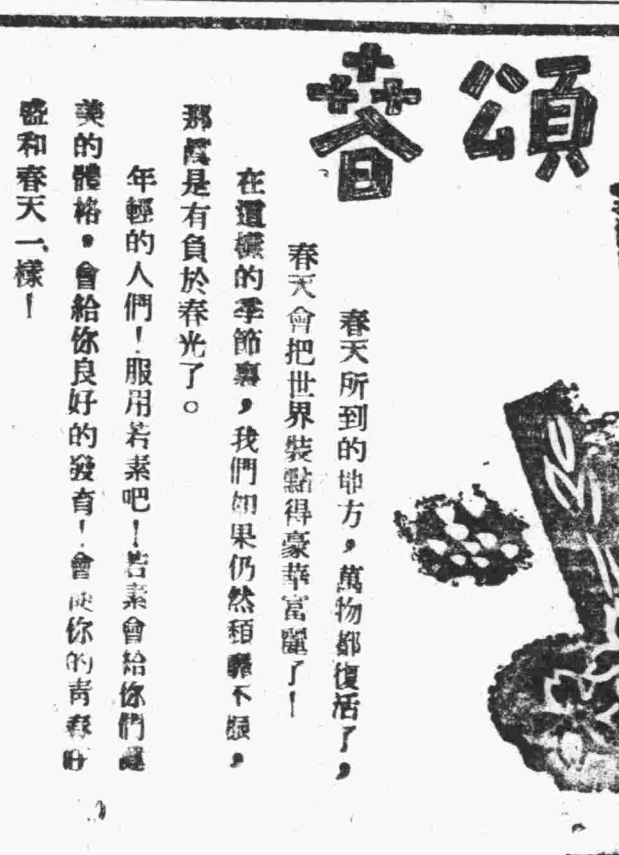 頌春
春天所到的地方，萬物都復活了，
春天會把世界裝點得豪華富麗了！
在這樣的季節裏，我們如果仍然頹靡不振，
那眞是有負於春光了。
年輕的人們！服用若素吧！若素會給你們健
美的體格，會給你良好的發育！會使你的靑春旺
盛和春天一樣！